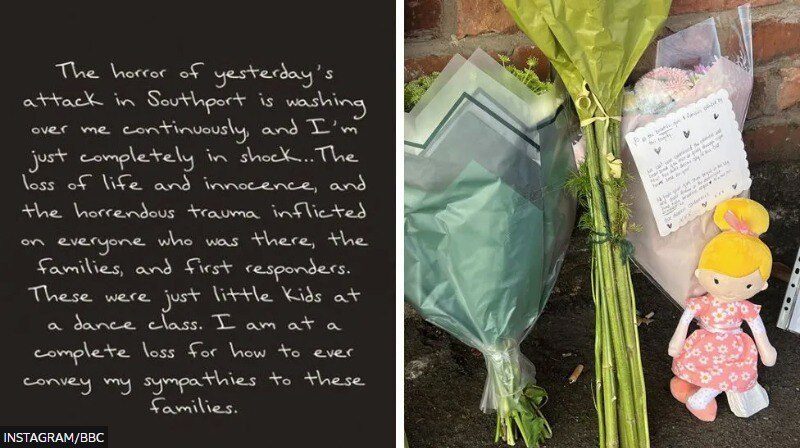 The horror of yesterday's
attack in Southport is washing
over me continuously, and I'm
just completely in shock...The
loss of life and innocence, and
the horrendous trauma inflicted
on everyone who was there, the
families, and first responders.
These were just little kids at
a dance class. I am at a
complete loss for how to ever
convey my sympathies to these
families.
INSTAGRAM/BBC